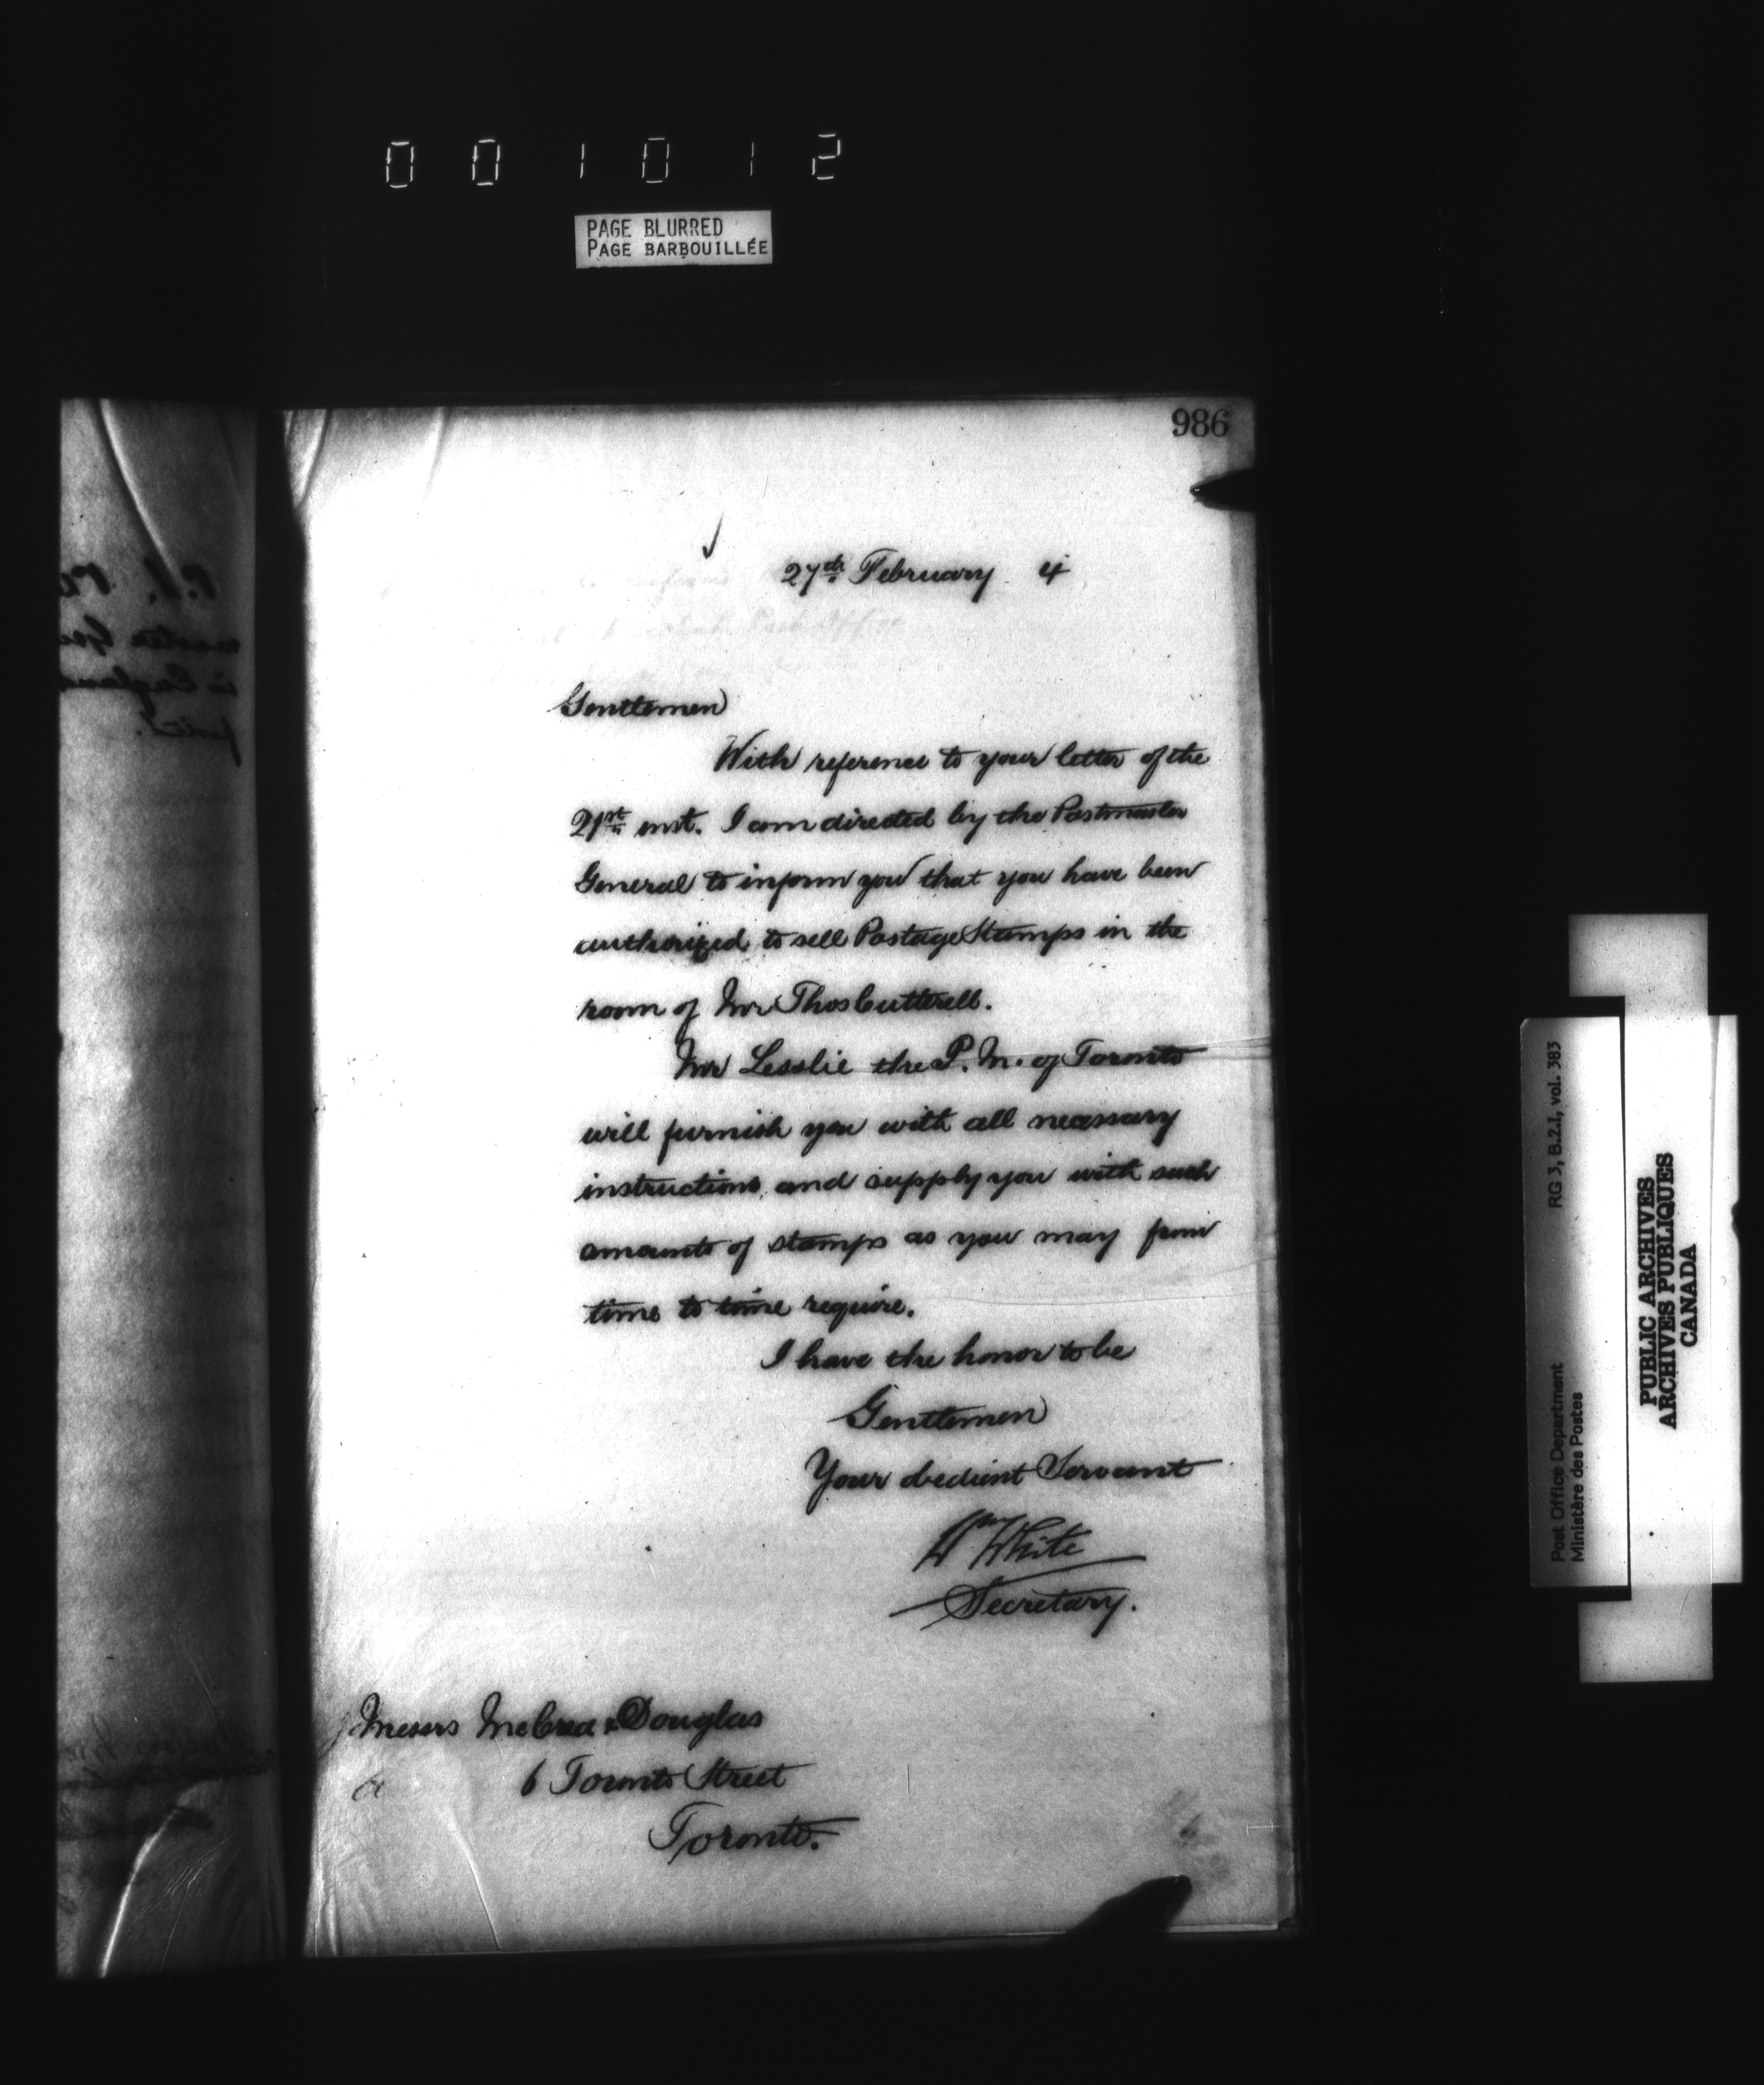 001012
PAGE BLURRED
PAGE BARBOUILLÉE
986
27th February 4
Gentlemen
With reference to your letter of the
21st inst. I am directed by the Postmaster
General to inform you that you have been
authorized to sell Postage Stamps in the
room of Mr Thos Cutterell.
Mr Lesslie the P.M. of Toronto
will furnish you with all necessary
instructions, and supply you with such
amounts of stamps as you may from
time to time require.
I have the honor to be
Gentlemen
Your obedient Servant
Wm White
Secretary.
Messrs McCrea & Douglas
6 Toronto Street
Toronto.
Post Office Department RG 3, B.2.1, vol. 383
Ministère des Postes
PUBLIC ARCHIVES
ARCHIVES PUBLIQUES
CANADA